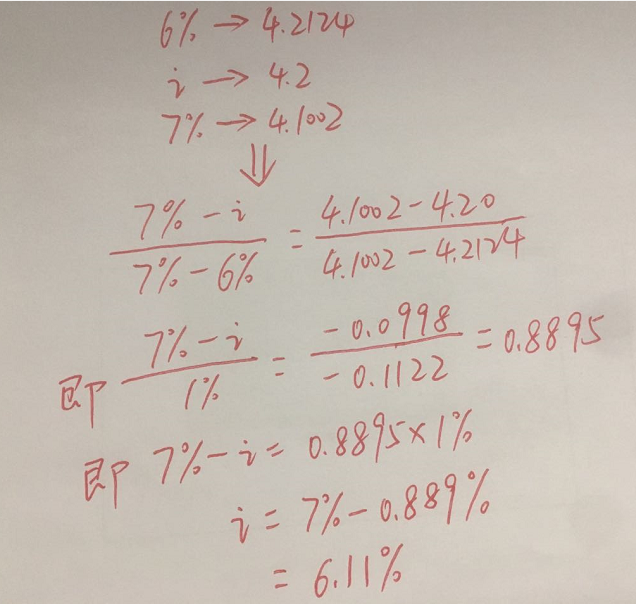 6% → 4.2124
i → 4.2
7% → 4.1002
⇓
(7% - i)/(7% - 6%) = (4.1002 - 4.20)/(4.1002 - 4.2124)
即 (7% - i)/1% = (-0.0998)/(-0.1122) = 0.8895
即 7% - i = 0.8895 × 1%
i = 7% - 0.889%
= 6.11%